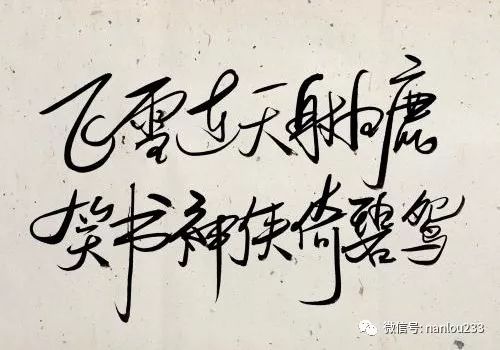 飞雪连天射白鹿
笑书神侠倚碧鸳
微信号: nanlou233